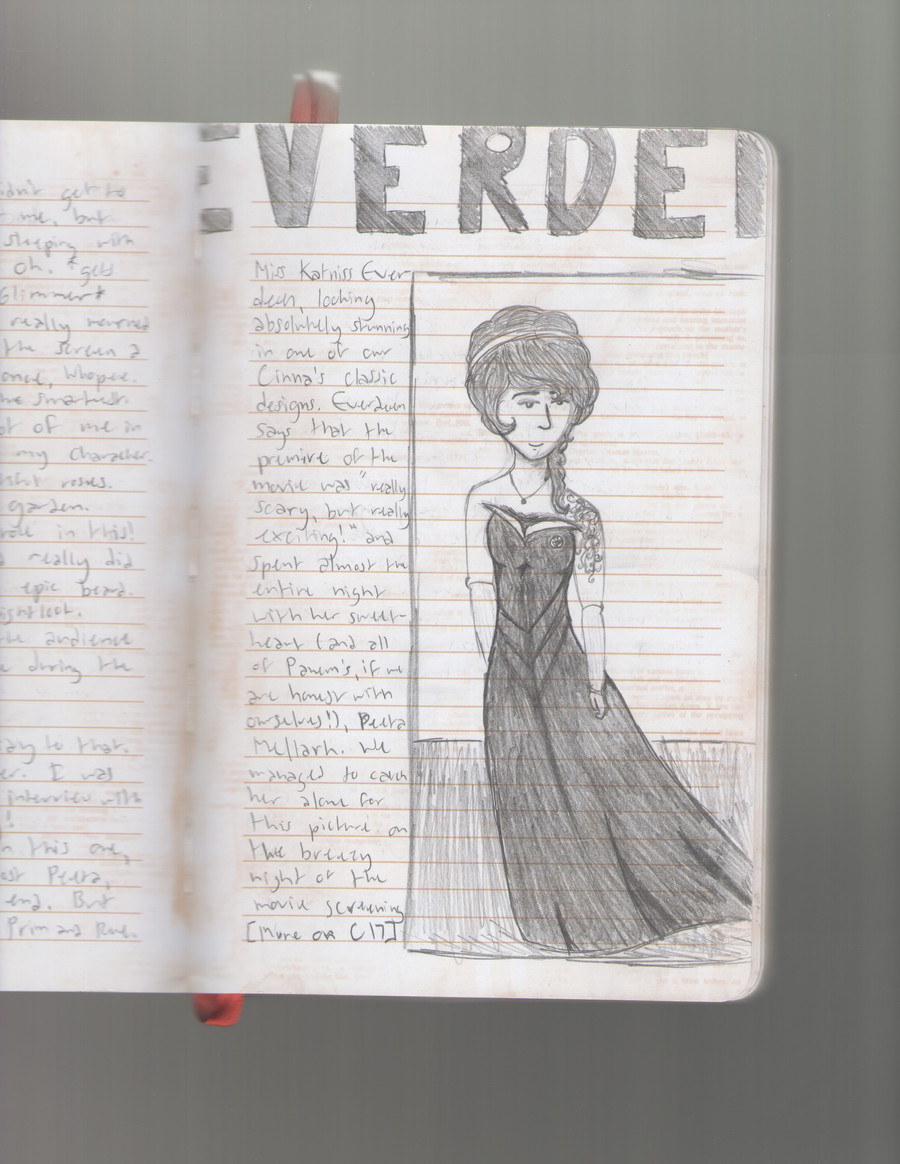 idn't get to
me, but
sleeping with
oh. *gets
Glimmer*
really
the screen a
once, whopee.
he smartest.
ot of me in
my character.
roses.
garden.
role in this!
really did
epic beard.
ightfoot.
the audience
e during the
to that.
er. I was
interview with
!
n this one,
ost Peeta,
end. But
Prim and Rue.
EVERDE
Miss Katniss Ever
deen, looking
absolutely stunning
in one of our
Cinna's classic
designs. Everdeen
says that the
premire of the
movie was "really
scary, but really
exciting!" and
spent almost the
entire night
with her sweet-
heart (and all
of Panem's, if we
are honest with
ourselves!), Peeta
Mellark. We
managed to catch
her alone for
this picture on
the breezy
night of the
movie screening
[More on C17]